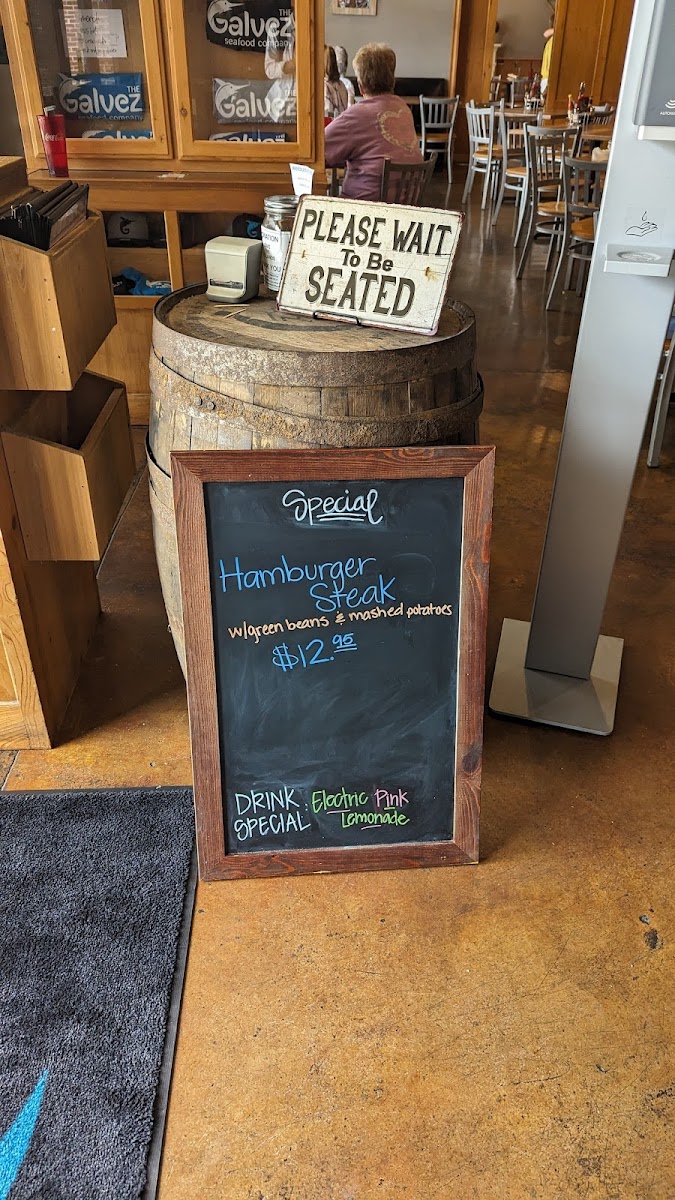 Galvez
seafood company
THE
Galvez
seafood company
Galvez
PLEASE WAIT
To Be
SEATED
Special
Hamburger
Steak
w/green beans & mashed potatoes
$12.95
DRINK : Electric Pink
SPECIAL Lemonade